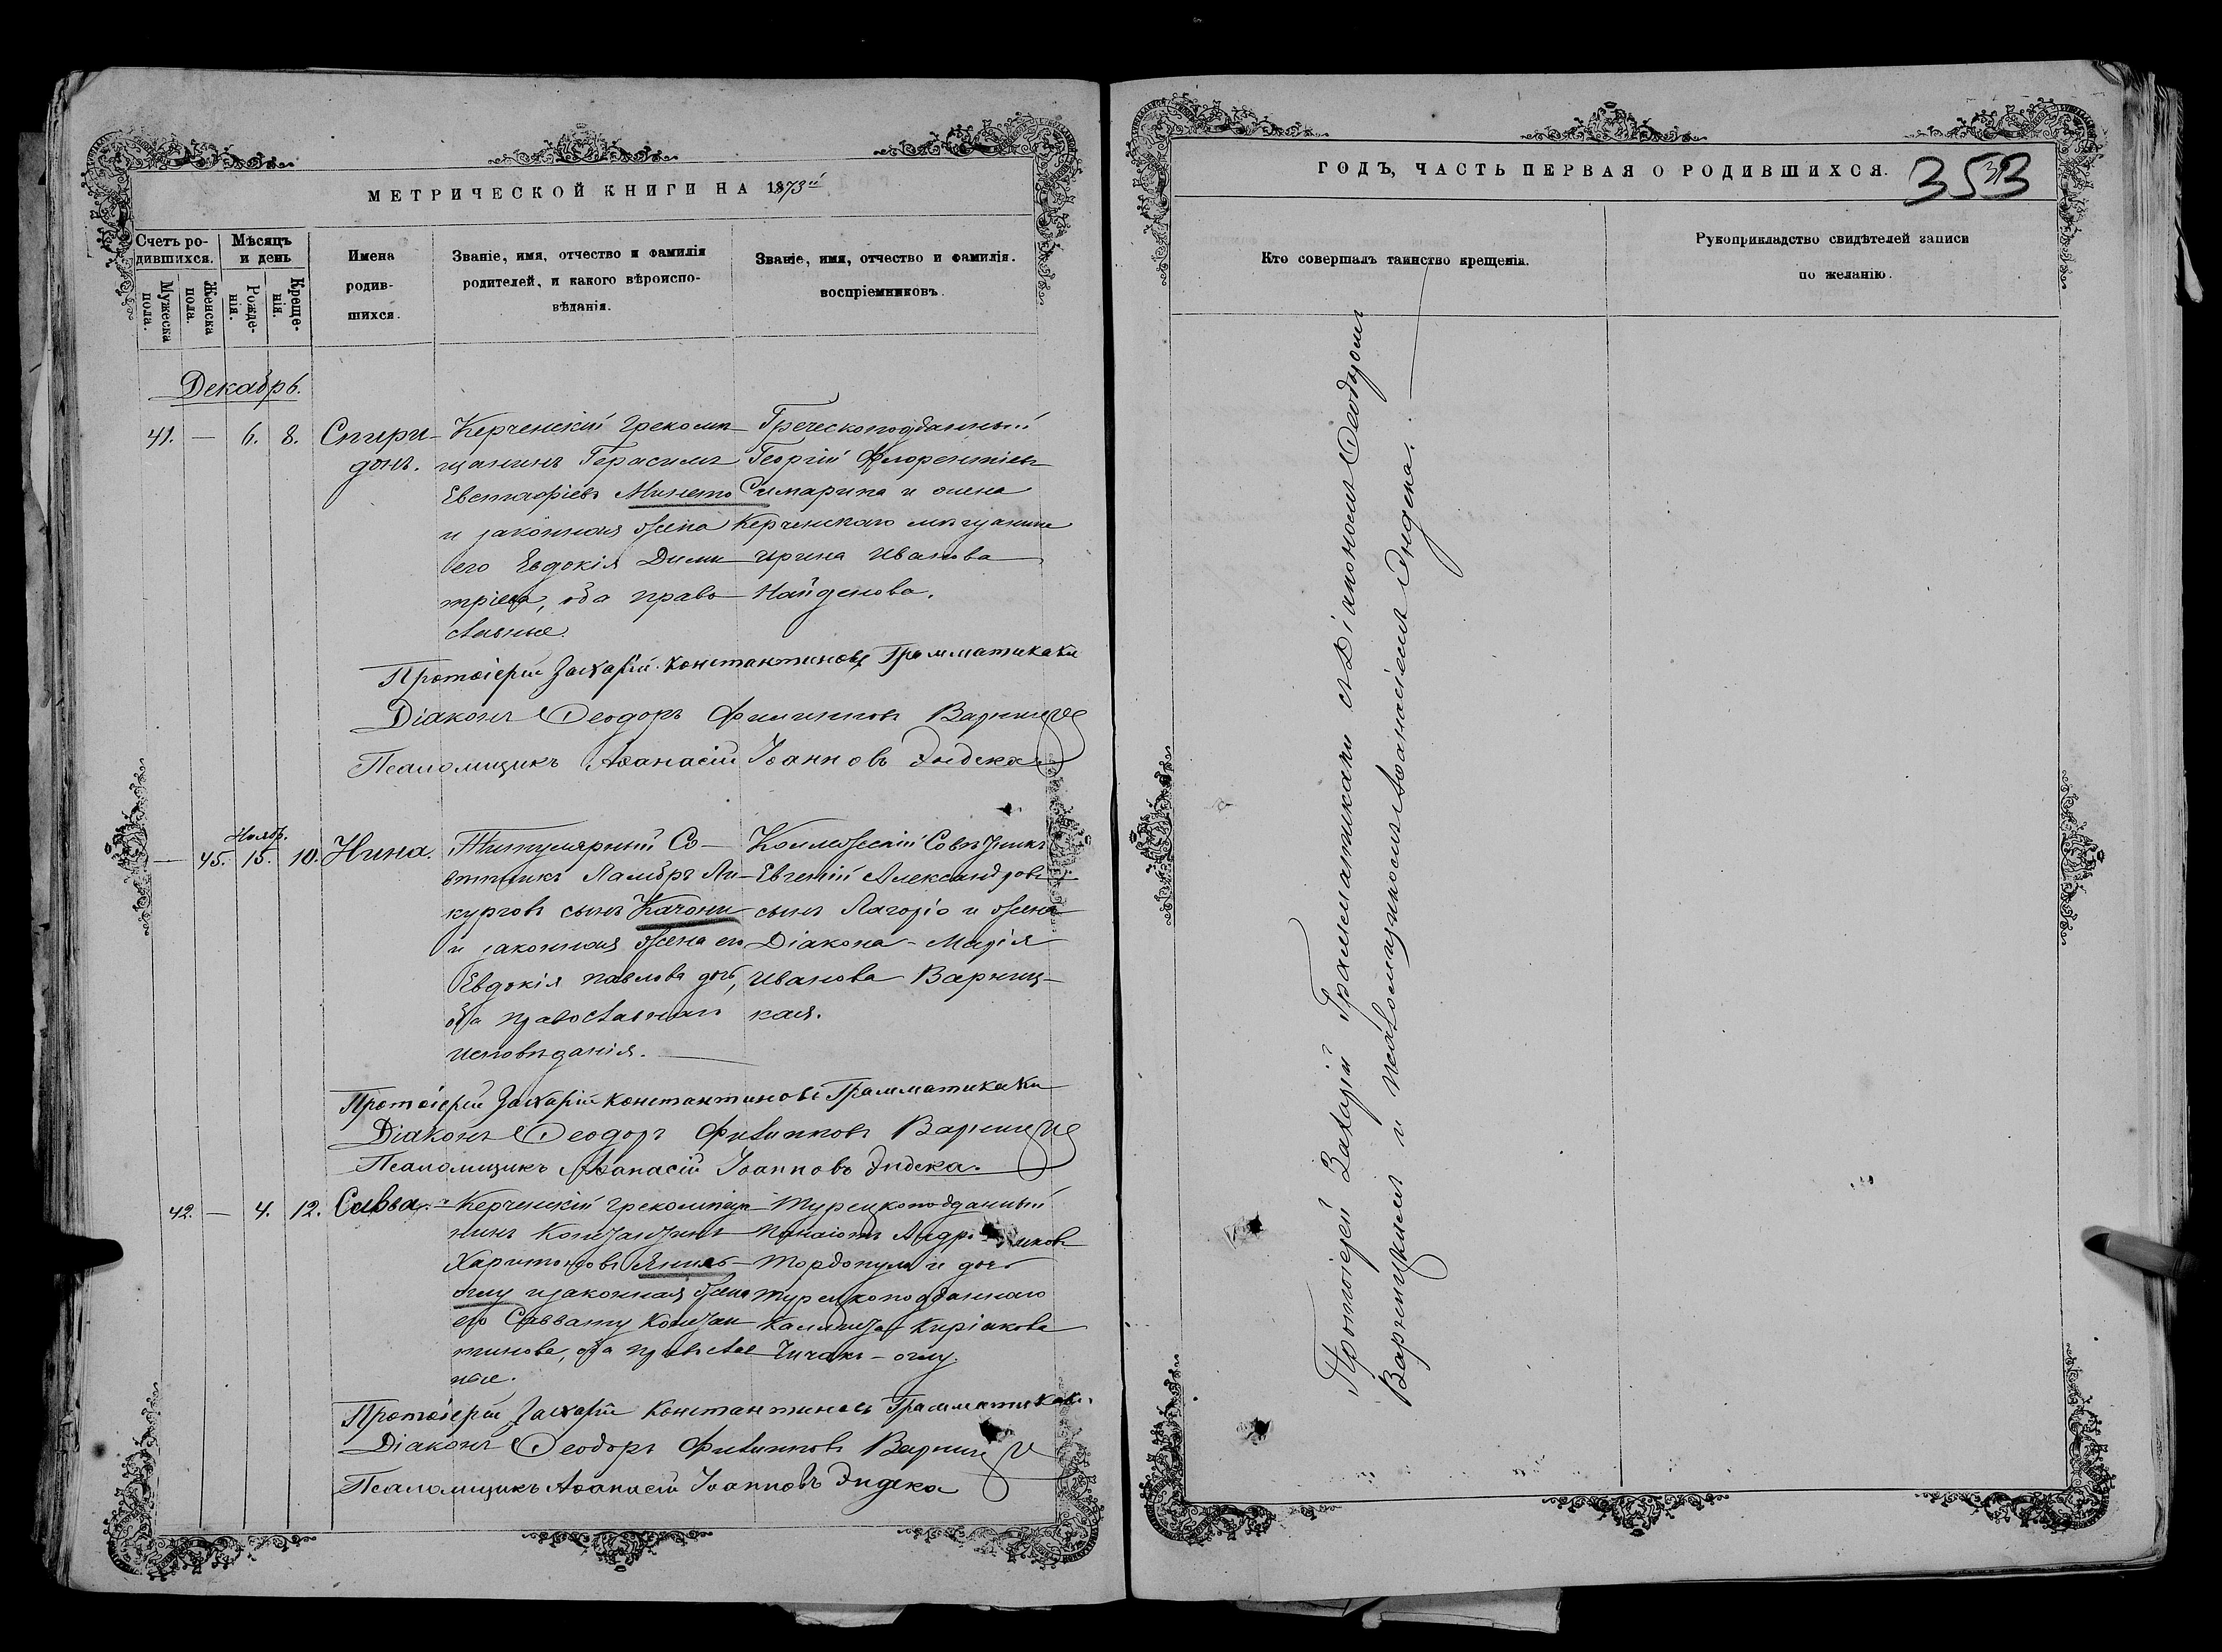 МЕТРИЧЕСКОЙ КНИГИ НА 1873й
Счетъ ро-
дившихся.
Мужеска
пола.
Женска
пола.
Мѣсяцъ
и день
Рожде-
нія.
Креще-
нія.
Имена
родив-
шихся.
Званіе, имя, отчество и фамилія
родителей, и какого вѣроиспо-
вѣданія.
Званіе, имя, отчество и фамилія.
воспріемниковъ.
Декабрь.
41. — 6. 8.
Спири-
донъ.
Керченскій грекомѣ-
щанинъ Герасимъ
Евстафіевъ Минето
и законная жена
его Евдокія Дими
тріева, оба право
славные.
Греческоподданный
Георгій Флорентіевъ
Симарипа и жена
Керченскаго мѣщанина
Ирина Иванова
Найденова.
Протоіерей Захарій Константиновъ Грамматикаки
Діаконъ Ѳеодоръ Филипповъ Варниц
Псаломщикъ Аѳанасій Іоанновъ Эндека
Ноябр.
— 45. 15. 10.
Нина.
Титулярный Со-
вѣтникъ Ламбръ Ли-
курговъ сынъ Качони
и законная жена его
Евдокія Павлова дочь,
оба православнаго
исповѣданія.
Коллежскій Совѣтникъ
Евгеній Александровъ
сынъ Лагоріо и жена
Діакона - Марія
Иванова Варниц-
кая.
Протоіерей Захарій Константиновъ Грамматикаки
Діаконъ Ѳеодоръ Филипповъ Варниц
Псаломщикъ Аѳанасій Іоанновъ Эндека.
42. — 4. 12.
Савва.
Керченскій грекомѣща
нинъ Константинъ
Харитоновъ
оглу и законная жена
его Константи
нова, оба православ
ные.
Турецкоподданный
Панаіотъ
и дочь
Турецкоподданнаго
Киріакова
Чичакъ - оглу.
Протоіерей Захарій Константиновъ Грамматикаки.
Діаконъ Ѳеодоръ Филипповъ Варниц
Псаломщикъ Аѳанасій Іоанновъ Эндека
ГОДЪ, ЧАСТЬ ПЕРВАЯ О РОДИВШИХСЯ.
353
Кто совершалъ таинство крещенія.
Рукоприкладство свидѣтелей записи
по желанію.
Протоіерей Захарій Грамматикаки съ Діакономъ Ѳеодоромъ
Варницкимъ и псаломщикомъ Аѳанасіемъ Эндека.